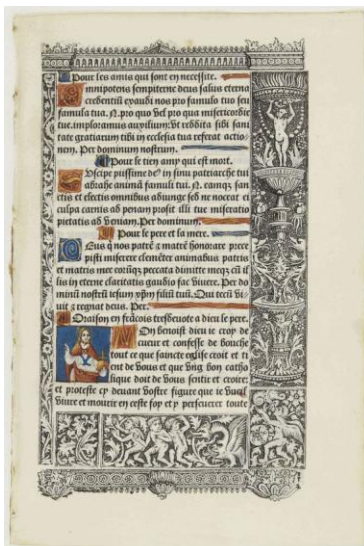 Pour les amis qui sont en necessite.
Omnipotens sempiterne deus salus eterna
credentiū exaudi nos pro famulo tuo seu
famula tua. N. pro quo vel pro qua misericordie
tue imploramus auxilium: vt reddita sibi sani
tate gratiarum tibi in ecclesia tua referat actio
nem. Per dominum nostrum.
Pour le tien amy qui est mort.
Suscipe piissime de⁹ in sinu patriarche tui
abrahe animā famuli tui. N. eamqȝ san
ctis et electis omnibus adiunge seb ne noceat ei
culpa carnis ad penam prosit illi tue miseratio
pietatis ad veniam. Per dominum.
Pour le pere et la mere.
Deus q̇ nos patrē ⁊ matrē honorare prece
pisti miserere clemēter animabus patris
et matris mee eorūqȝ peccata dimitte meqȝ cū il
lis in eterne claritatis gaudio fac viuere. Per do
minū nostrū iesum xp̄m filiū tuū. Qui tecū vi
uit ⁊ regnat deus. Per.
Oraison en frācois tresdeuote a dieu le pere.
Mon benoist dieu ie croy de
cueur et confesse de bouche
tout ce que saincte eglise croit et ti
ent de vous et que vng bon catho
lique doit de vous sentir et croire:
et proteste cy deuant vostre figure que ie vueil
viure et mourir en ceste foy et y perseuerer toute